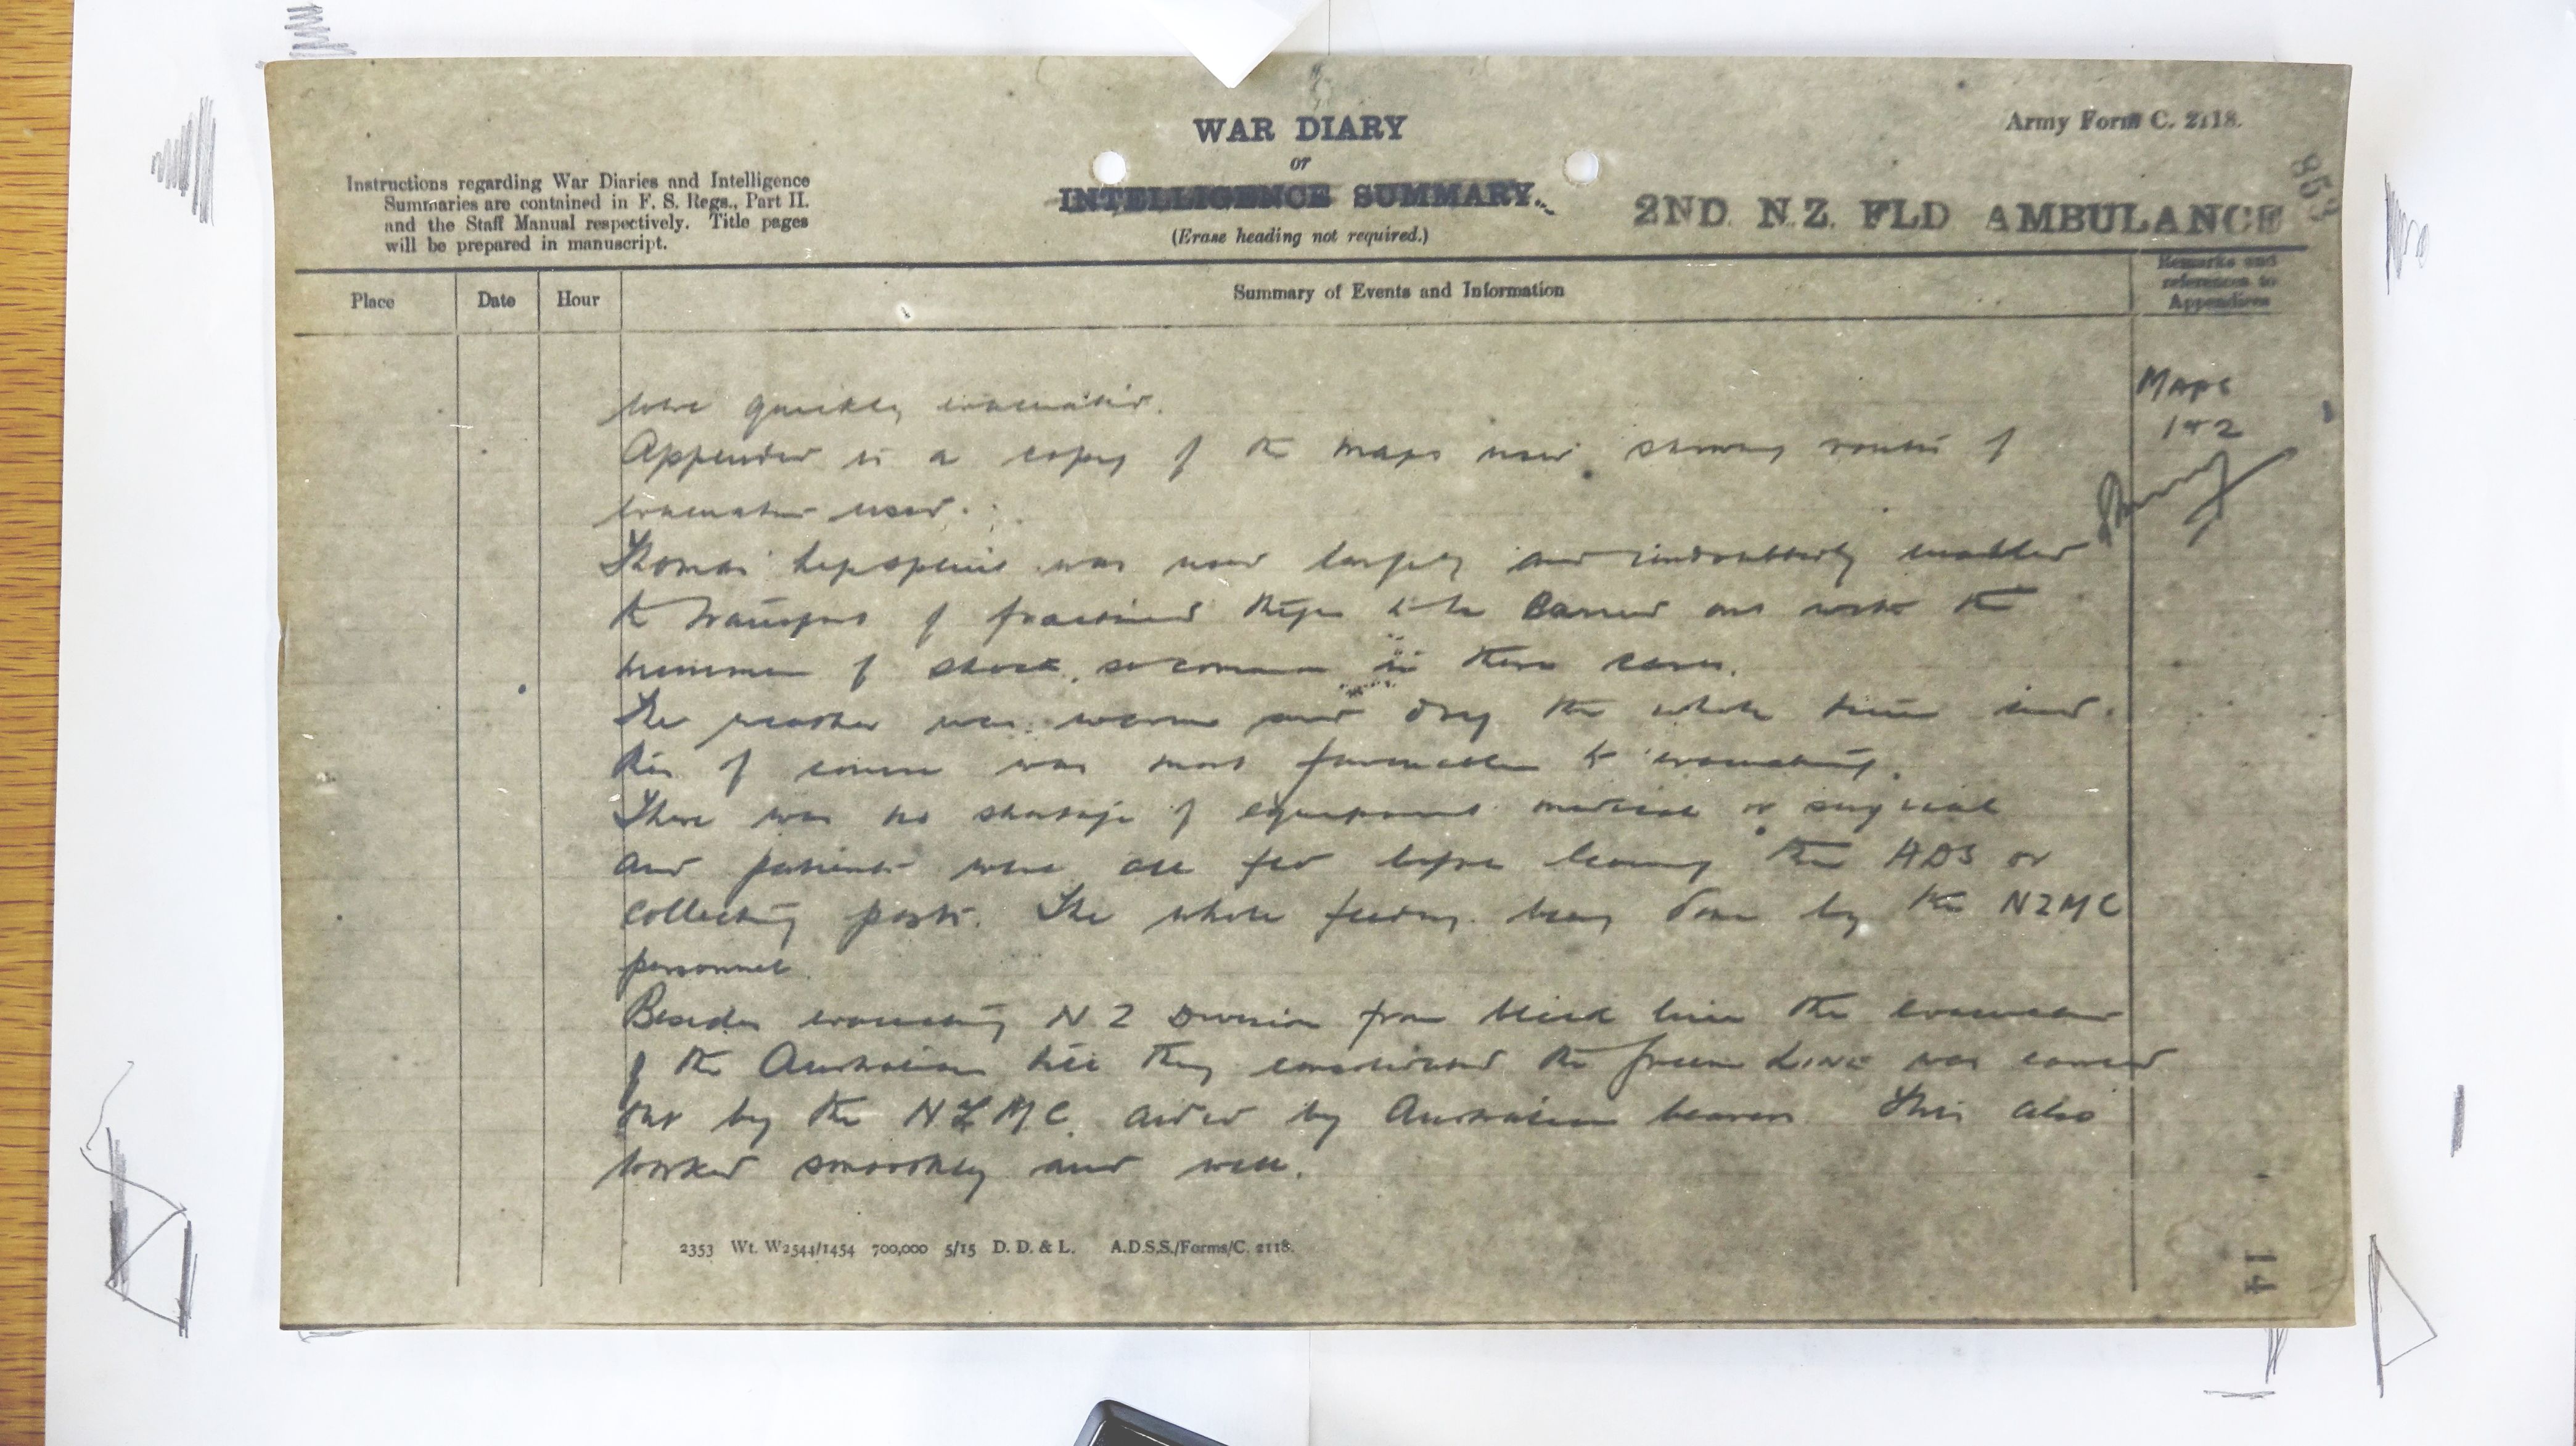 WAR DIARY
or
INTELLIGENCE SUMMARY.
(Erase heading not required.)
Army Form C. 2118.
Instructions regarding War Diaries and Intelligence
Summaries are contained in F. S. Regs., Part II.
and the Staff Manual respectively. Title pages
will be prepared in manuscript.
2ND. N.Z. FLD AMBULANCE
853
Place
Date
Hour
Summary of Events and Information
Remarks and
references to
Appendices
were quickly evacuated.
Appended is a copy of the maps used showing routes of
evacuation used.
Maps
1 & 2
Thomas hip splint was used largely and undoubtedly enabled
the transport of fractured thighs to be carried out with the
minimum of shock, so common in these cases.
The weather was warm and dry the whole time and
this of course was most favourable to evacuating.
There was no shortage of equipment medical or surgical
and patients were all fed before leaving the ADS or
collecting posts. The whole feeding being done by the NZMC
personnel.
Besides evacuating NZ Division from black line the evacuation
of the Australians till they consolidated the green LINE was carried
out by the NZMC aided by Australian bearers. This also
worked smoothly and well.
2353 Wt. W2544/1454 700,000 5/15 D. D. & L. A.D.S.S./Forms/C. 2118.
14